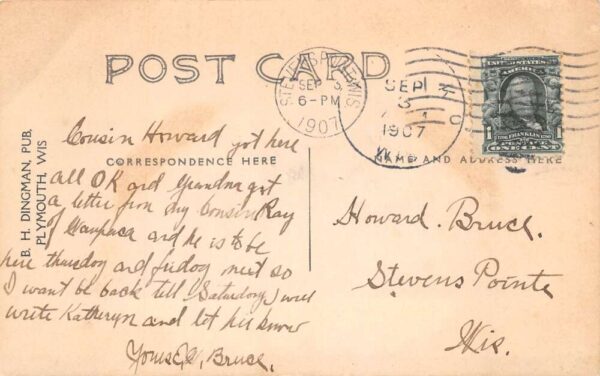 POST CARD
STEVENS POINT, WIS.
SEP 3
6-PM
1907
SEP
3
1907
WIS
UNITED STATES
AMERICA
1 FRANKLIN 1
ONE CENT
B. H. DINGMAN, PUB.
PLYMOUTH, WIS
CORRESPONDENCE HERE
Cousin Howard got here
all OK and Grandma got
a letter from my Cousin Ray
of Waupaca and he is to be
here thursday and friday next so
I want be back till Saturday, will
write Katheryn and let her know
Yours, Bruce.
NAME AND ADDRESS HERE
Howard. Bruce.
Stevens Pointe
Wis.